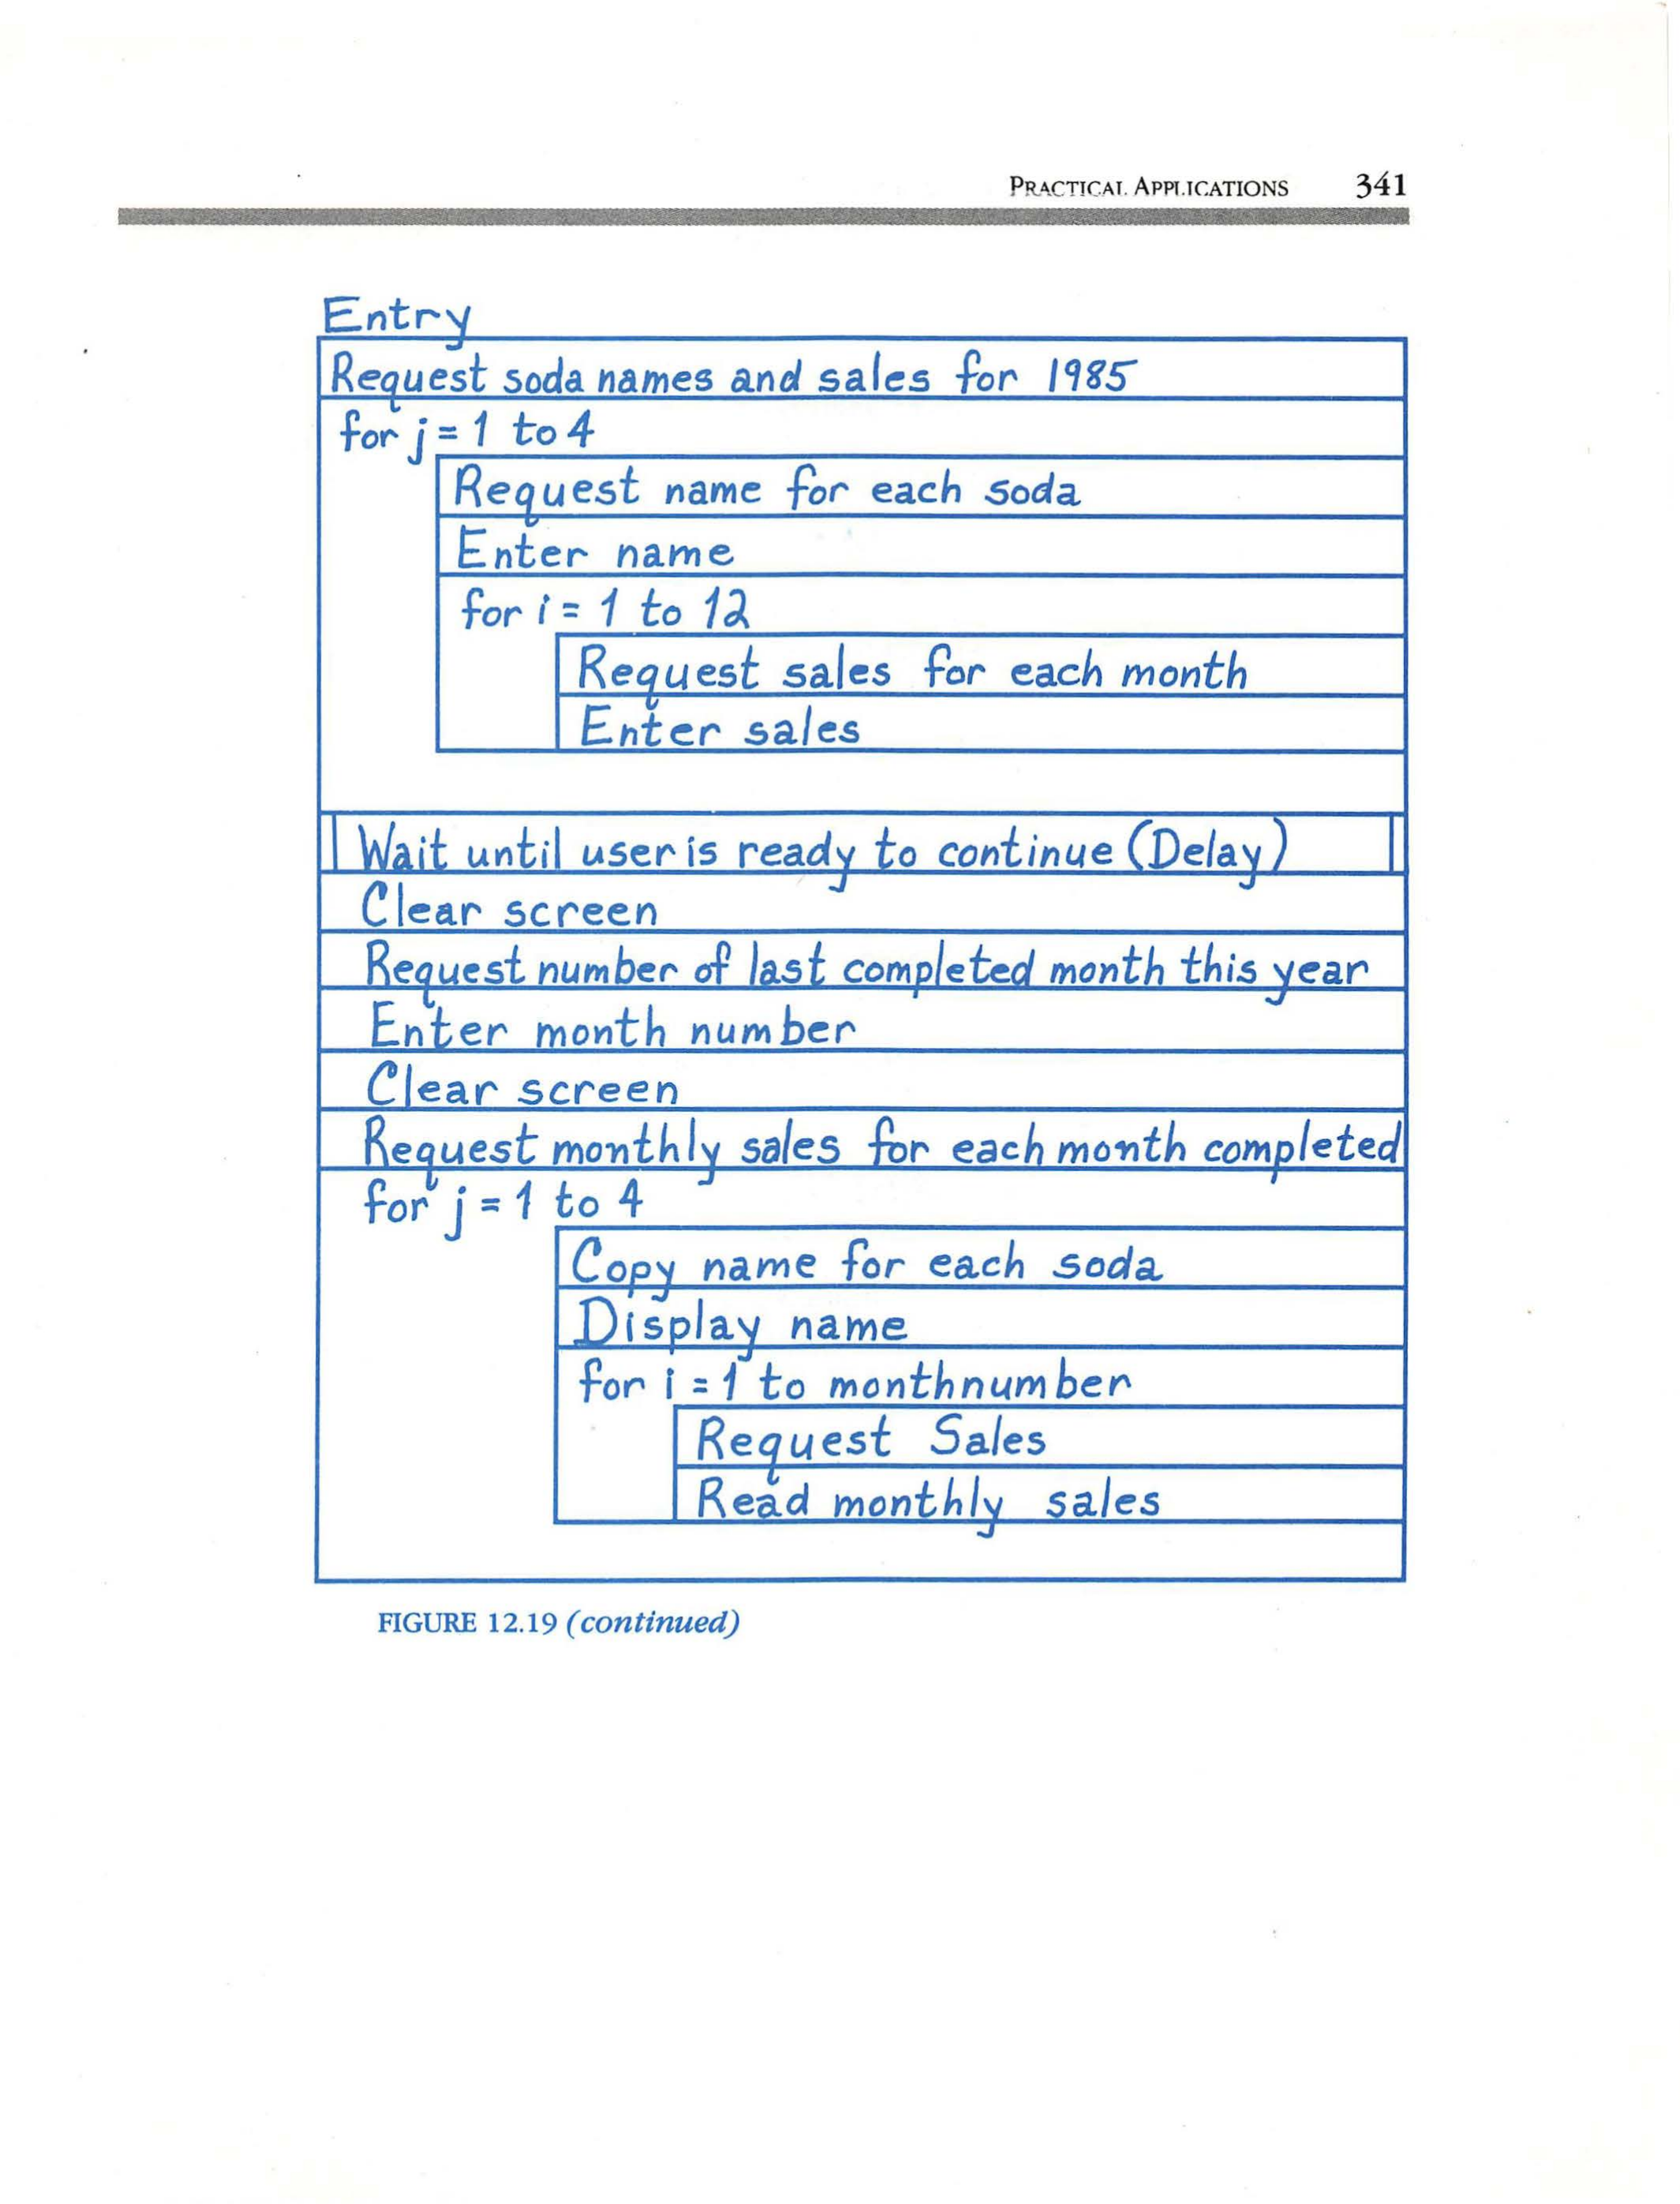 PRACTICAL APPLICATIONS 341
Entry
Request soda names and sales for 1985
for j = 1 to 4
Request name for each soda
Enter name
for i = 1 to 12
Request sales for each month
Enter sales
Wait until user is ready to continue (Delay)
Clear screen
Request number of last completed month this year
Enter month number
Clear screen
Request monthly sales for each month completed
for j = 1 to 4
Copy name for each soda
Display name
for i = 1 to monthnumber
Request Sales
Read monthly sales
FIGURE 12.19 (continued)